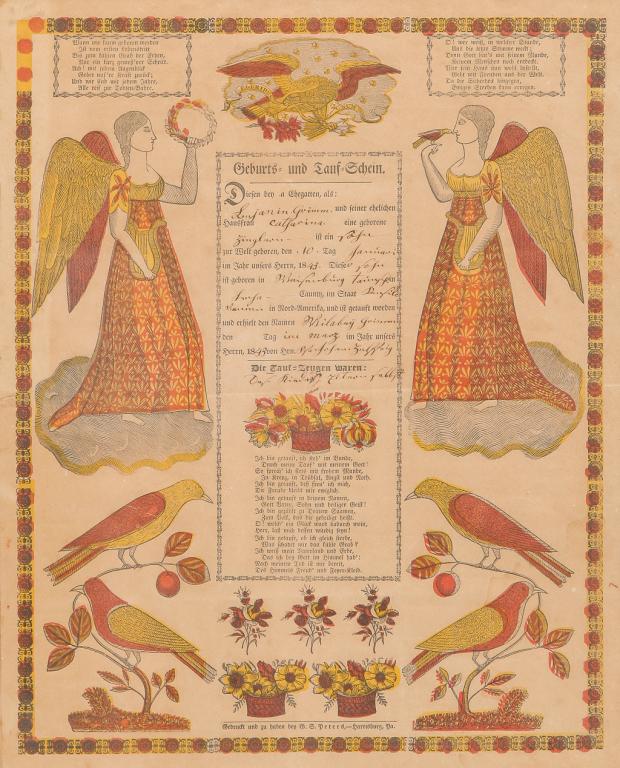 Wann wir kaum geboren werden
Ist vom ersten Lebenstritt
Bis zum kühlen Grab der Erden,
Nur ein kurz gemess'ner Schritt.
Ach! mit jedem Augenblick
Gehet uns're Kraft zurück;
Und wir sind mit jedem Jahre,
Alle reif zur Todten-Bahre.
O! wer weiß, in welcher Stunde,
Uns die letzte Stimme weckt;
Denn Gott hat's mit seinem Munde,
Keinem Menschen noch entdeckt.
Wer sein Haus nun wohl bestellt,
Geht mit Freuden aus der Welt.
Da die Sicherheit hingegen,
Ewiges Sterben kann erregen.
Geburts- und Tauf-Schein.
Diesen bey a Ehegatten, als:
Grimm und seiner ehelichen
Hausfrau Catharina eine geborne
ist ein Sohn
zur Welt geboren, den 10. Tag Januari
im Jahr unsers Herrn, 1843. Dieser Sohn
ist geboren in Taunschip
County, im Staat
in Nord-Amerika, und ist getauft worden
und erhielt den Namen Grimm
den Tag im März im Jahr unsers
Herrn, 1843 von Hrn.
Die Tauf-Zeugen waren:
Eltern selbst
Ich bin getauft, ich steh' im Bunde,
Durch meine Tauf' mit meinem Gott!
So sprech' ich stets mit frohem Munde,
In Kreuz, in Trübsal, Angst und Noth.
Ich bin getauft, deß freu' ich mich,
Die Freude bleibt mir ewiglich.
Ich bin getauft in deinem Namen,
Gott Vater, Sohn und heiliger Geist!
Ich bin gezählt zu Deinem Saamen,
Zum Volk, das dir geheiligt heißt.
O! welch' ein Glück ward dadurch mein,
Herr, laß mich dessen würdig seyn!
Ich bin getauft, ob ich gleich sterbe,
Was schadet mir das kühle Grab?
Ich weiß mein Vaterland und Erbe,
Das ich bey Gott im Himmel hab':
Nach meinem Tod ist mir bereit,
Des Himmels Freud' und Feyerkleid.
Gedruckt und zu haben bey G. S. Peters,—Harrisburg, Pa.